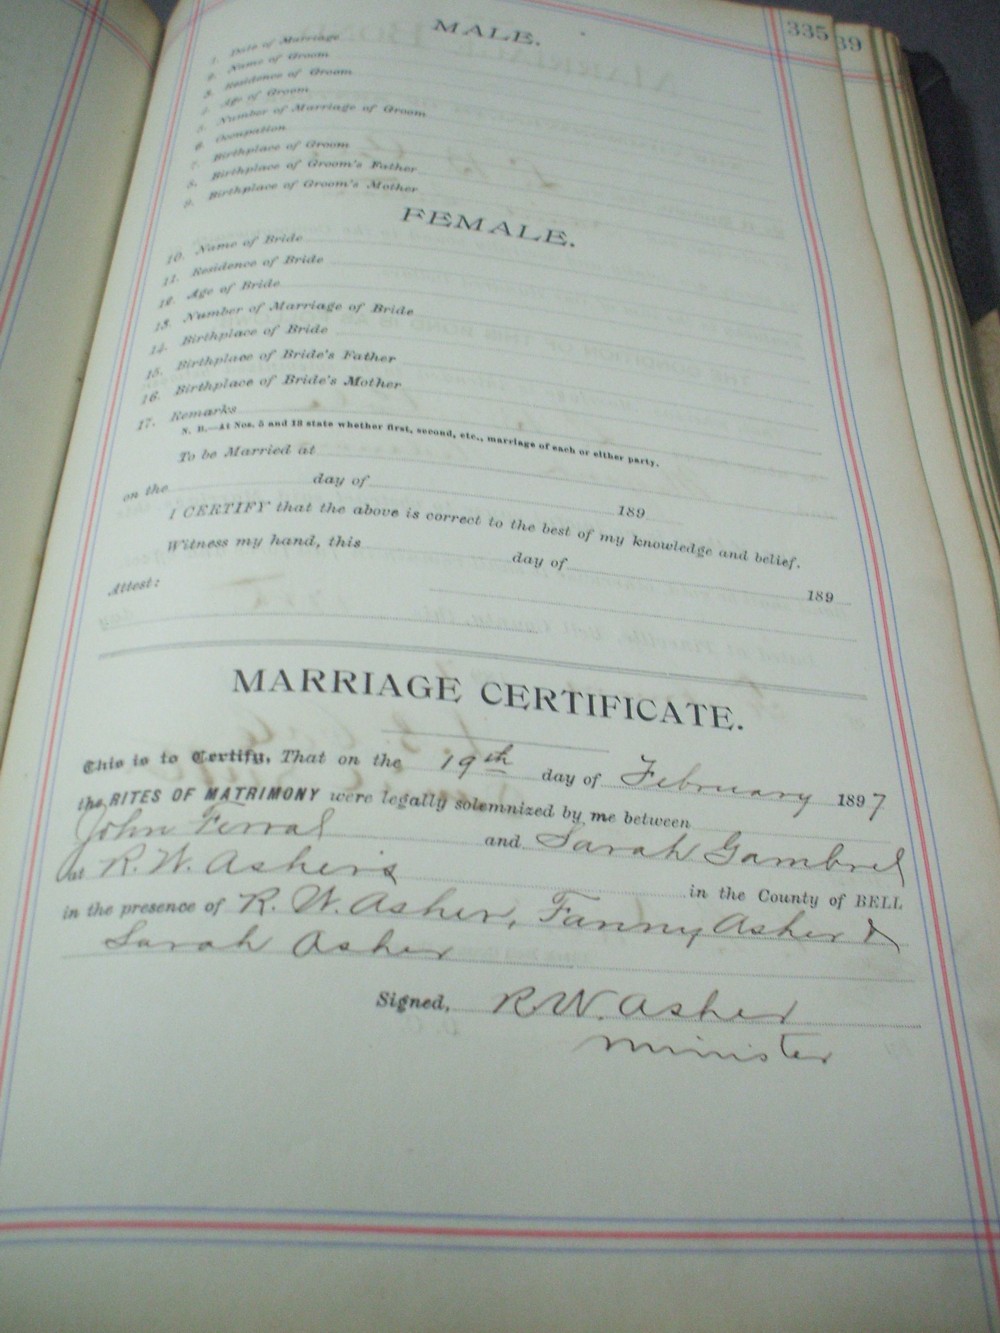 335 39
MALE.
1. Date of Marriage
2. Name of Groom
3. Residence of Groom
4. Age of Groom
5. Number of Marriage of Groom
6. Occupation
7. Birthplace of Groom
8. Birthplace of Groom's Father
9. Birthplace of Groom's Mother
FEMALE.
10. Name of Bride
11. Residence of Bride
12. Age of Bride
13. Number of Marriage of Bride
14. Birthplace of Bride
15. Birthplace of Bride's Father
16. Birthplace of Bride's Mother
17. Remarks
N. B.—At Nos. 5 and 13 state whether first, second, etc., marriage of each or either party.
To be Married at
on the day of 189
I CERTIFY that the above is correct to the best of my knowledge and belief.
Witness my hand, this day of 189
Attest:
MARRIAGE CERTIFICATE.
This is to Certify, That on the 19th day of February 1897
the RITES OF MATRIMONY were legally solemnized by me between
John Ferral and Sarah Gambrel
at R. W. Asher's in the County of BELL
in the presence of R. W. Asher, Fanny Asher &
Sarah Asher
Signed, R. W. Asher
Minister